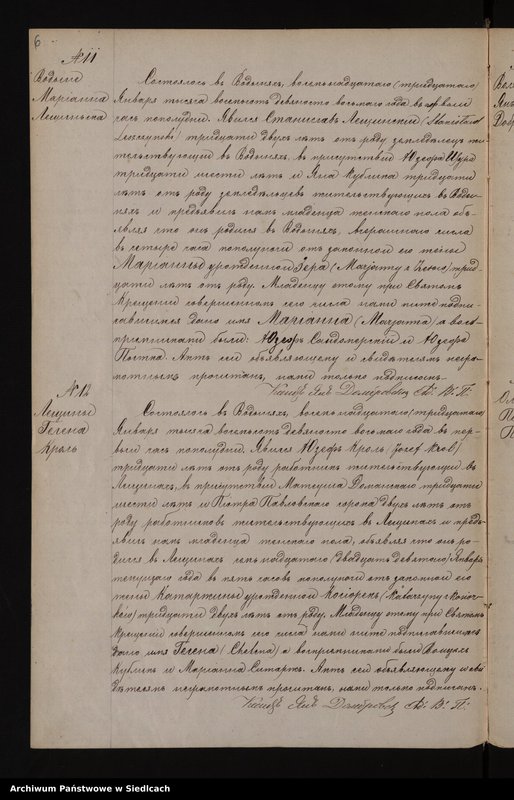 6
№ 11
Водыне
Маріанна
Лещинска
Состоялось въ Водыняхъ, восемьнадцатаго (тридцатаго)
Января тысяча восемьсотъ девяносто восьмаго года въ первомъ
часъ пополудни. Явился Станиславъ Лещинскій (Stanisław
Leszczyński) тридцати двухъ лѣтъ отъ роду земледѣлецъ жи-
тельствующій въ Водыняхъ, въ присутствіи Юзефа
тридцати шести лѣтъ и Яна Кублика тридцати
лѣтъ отъ роду земледѣльцевъ жительствующихъ въ Воды-
няхъ и предъявилъ намъ младенца женскаго пола объ-
являя что онъ родился въ Водыняхъ, вчерашняго числа
въ четыре часа пополудни отъ законной его жены
Маріанны урожденной Зера (Marjanny z Zerów) трид-
цати лѣтъ отъ роду. Младенцу этому при Святомъ
Крещеніи совершенномъ сего числа нами ниже подпи-
савшимся дано имя Маріанна (Marjanna), а вос-
пріемниками были: Юзефъ Сандомерскій и Юзефа
Актъ сей объявляющему и свидѣтелямъ негра-
мотнымъ прочитанъ, нами только подписанъ.
Ксендзъ Янъ
№ 12
Лещины
Гелена
Кроль
Состоялось въ Водыняхъ, восемьнадцатаго (тридцатаго)
Января тысяча восемьсотъ девяносто восьмаго года въ пер-
вомъ часъ пополудни. Явился Юзефъ Кроль (Józef Król)
тридцати лѣтъ отъ роду работникъ жительствующій въ
Лещинахъ, въ присутствіи Матеуша Доманскаго тридцати
шести лѣтъ и Петра Павловскаго сорока двухъ лѣтъ отъ
роду работниковъ жительствующихъ въ Лещинахъ и предъ-
явилъ намъ младенца женскаго пола, объявляя что онъ ро-
дился въ Лещинахъ семьнадцатаго (двадцать девятаго) Января
текущаго года въ пять часовъ пополудни отъ законной его
жены Катаржины урожденной (Katarzyny z
тридцати двухъ лѣтъ отъ роду. Младенцу тому при Святомъ
Крещеніи совершенномъ сего числа нами ниже подписавшимся
дано имя Гелена (Chelena) а воспріемниками были
Кубликъ и Маріанна Актъ сей объявляющему и сви-
дѣтелямъ неграмотнымъ прочитанъ, нами только подписанъ.
Ксендзъ Янъ
Archiwum Państwowe w Siedlcach